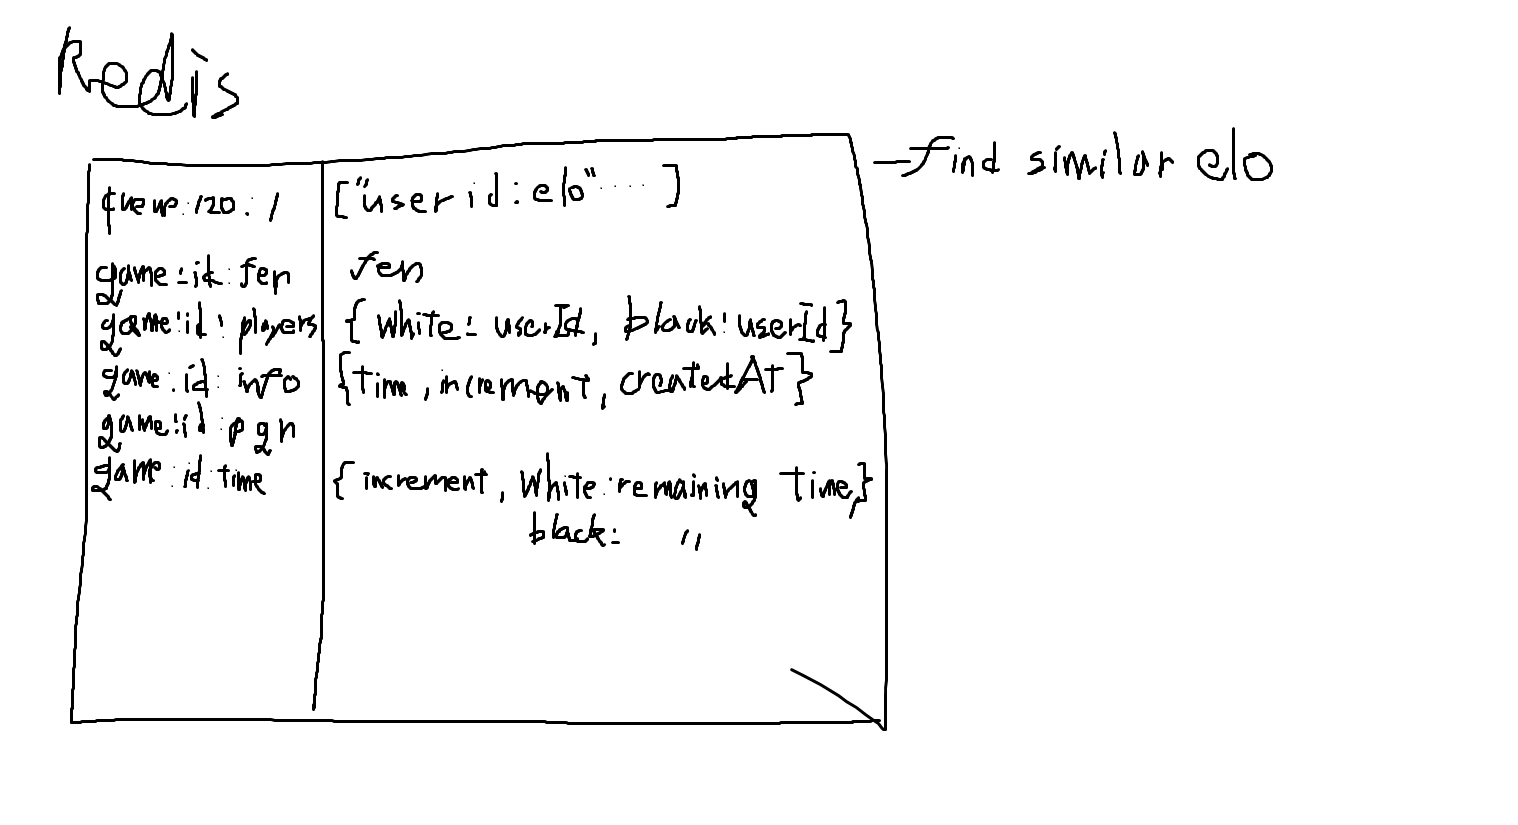 Redis
queue:120:1 ["userid:elo"....] -find similar elo
game:id:fen fen
game:id:players {white: userId, black:userId}
game:id:info {time, increment, createdAt}
game:id:pgn
game:id:time {increment, white:remaining time,}
black: "